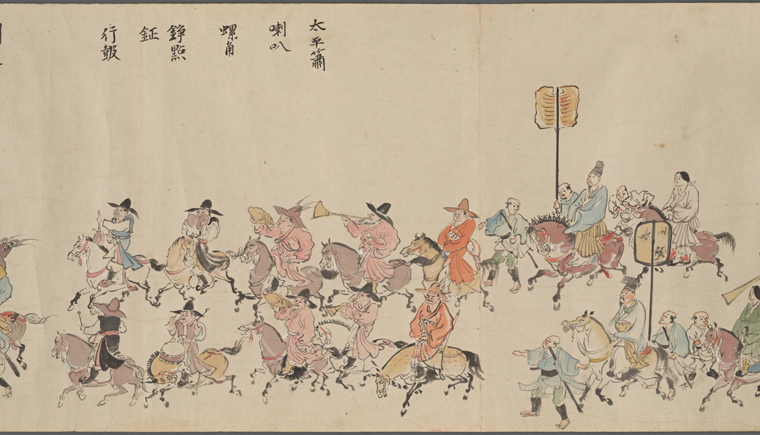 太平簫
喇叭
螺角
錚點
鉦
行皷